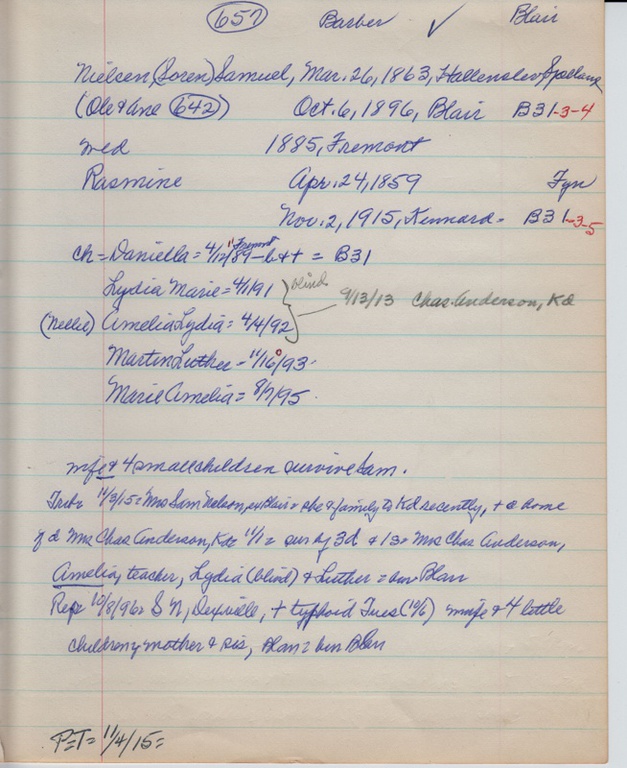 657 Barber ✓ Blair
Nielsen (Soren) Samuel, Mar. 26, 1863, Hallenslev
(Ole & Ane 642) Oct. 6, 1896, Blair B31-3-4
med 1885, Fremont
Rasmine Apr. 24, 1859 Fyn
Nov. 2, 1915, Kennard = B31-3-5
ch = Daniella = 4/12/89 - b & t = B31
Lydia Marie = 4/1/91 blind 9/13/13 Chas. Anderson, Kd
(Nellie) Amelia Lydia = 4/4/92
Martin Luther = 11/16/93
Marie Amelia = 8/7/95
wife & 4 small children survive Sam.
Trib = 11/3/15 = Mrs Sam Nelson, Blair = she & family to Kd recently, + @ home
of d Mrs Chas Anderson, Kd = 11/1 = sur by 3d & 1s = Mrs Chas Anderson,
Amelia, teacher, Lydia (blind) & Luther = bur Blair
Rep = 10/8/96 = S N, + typhoid Tues (10/6) wife & 4 little
children, mother & sis, bur Blair
P=T= 11/4/15=